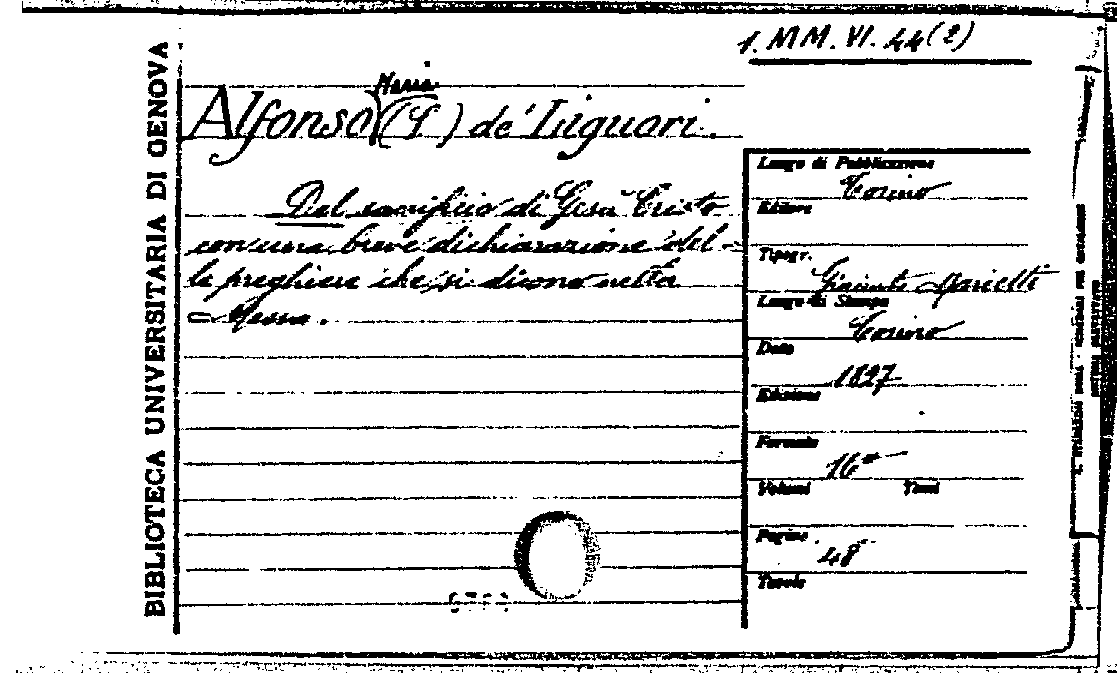 1. MM. VI. 44(2)
BIBLIOTECA UNIVERSITARIA DI GENOVA
Maria
Alfonso (S) de' Liguori.
Del sacrificio di Gesù Cristo
con una breve dichiarazione del-
le preghiere che si dicono nella
Messa.
Luogo di Pubblicazione
Torino
Editore
Tipogr.
Giacinto Marietti
Luogo di Stampa
Torino
Data
1827
Edizione
Formato
16°
Volumi Tomi
Pagine
48
Tavole